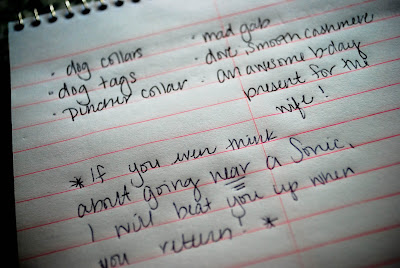 · dog collars
· dog tags
· pincher collar
· mad gab
· dove smooth cashmere
· an awesome b-day
present for the
wife!
* If you even think
about going near a Sonic,
I will beat you up when
you return! *